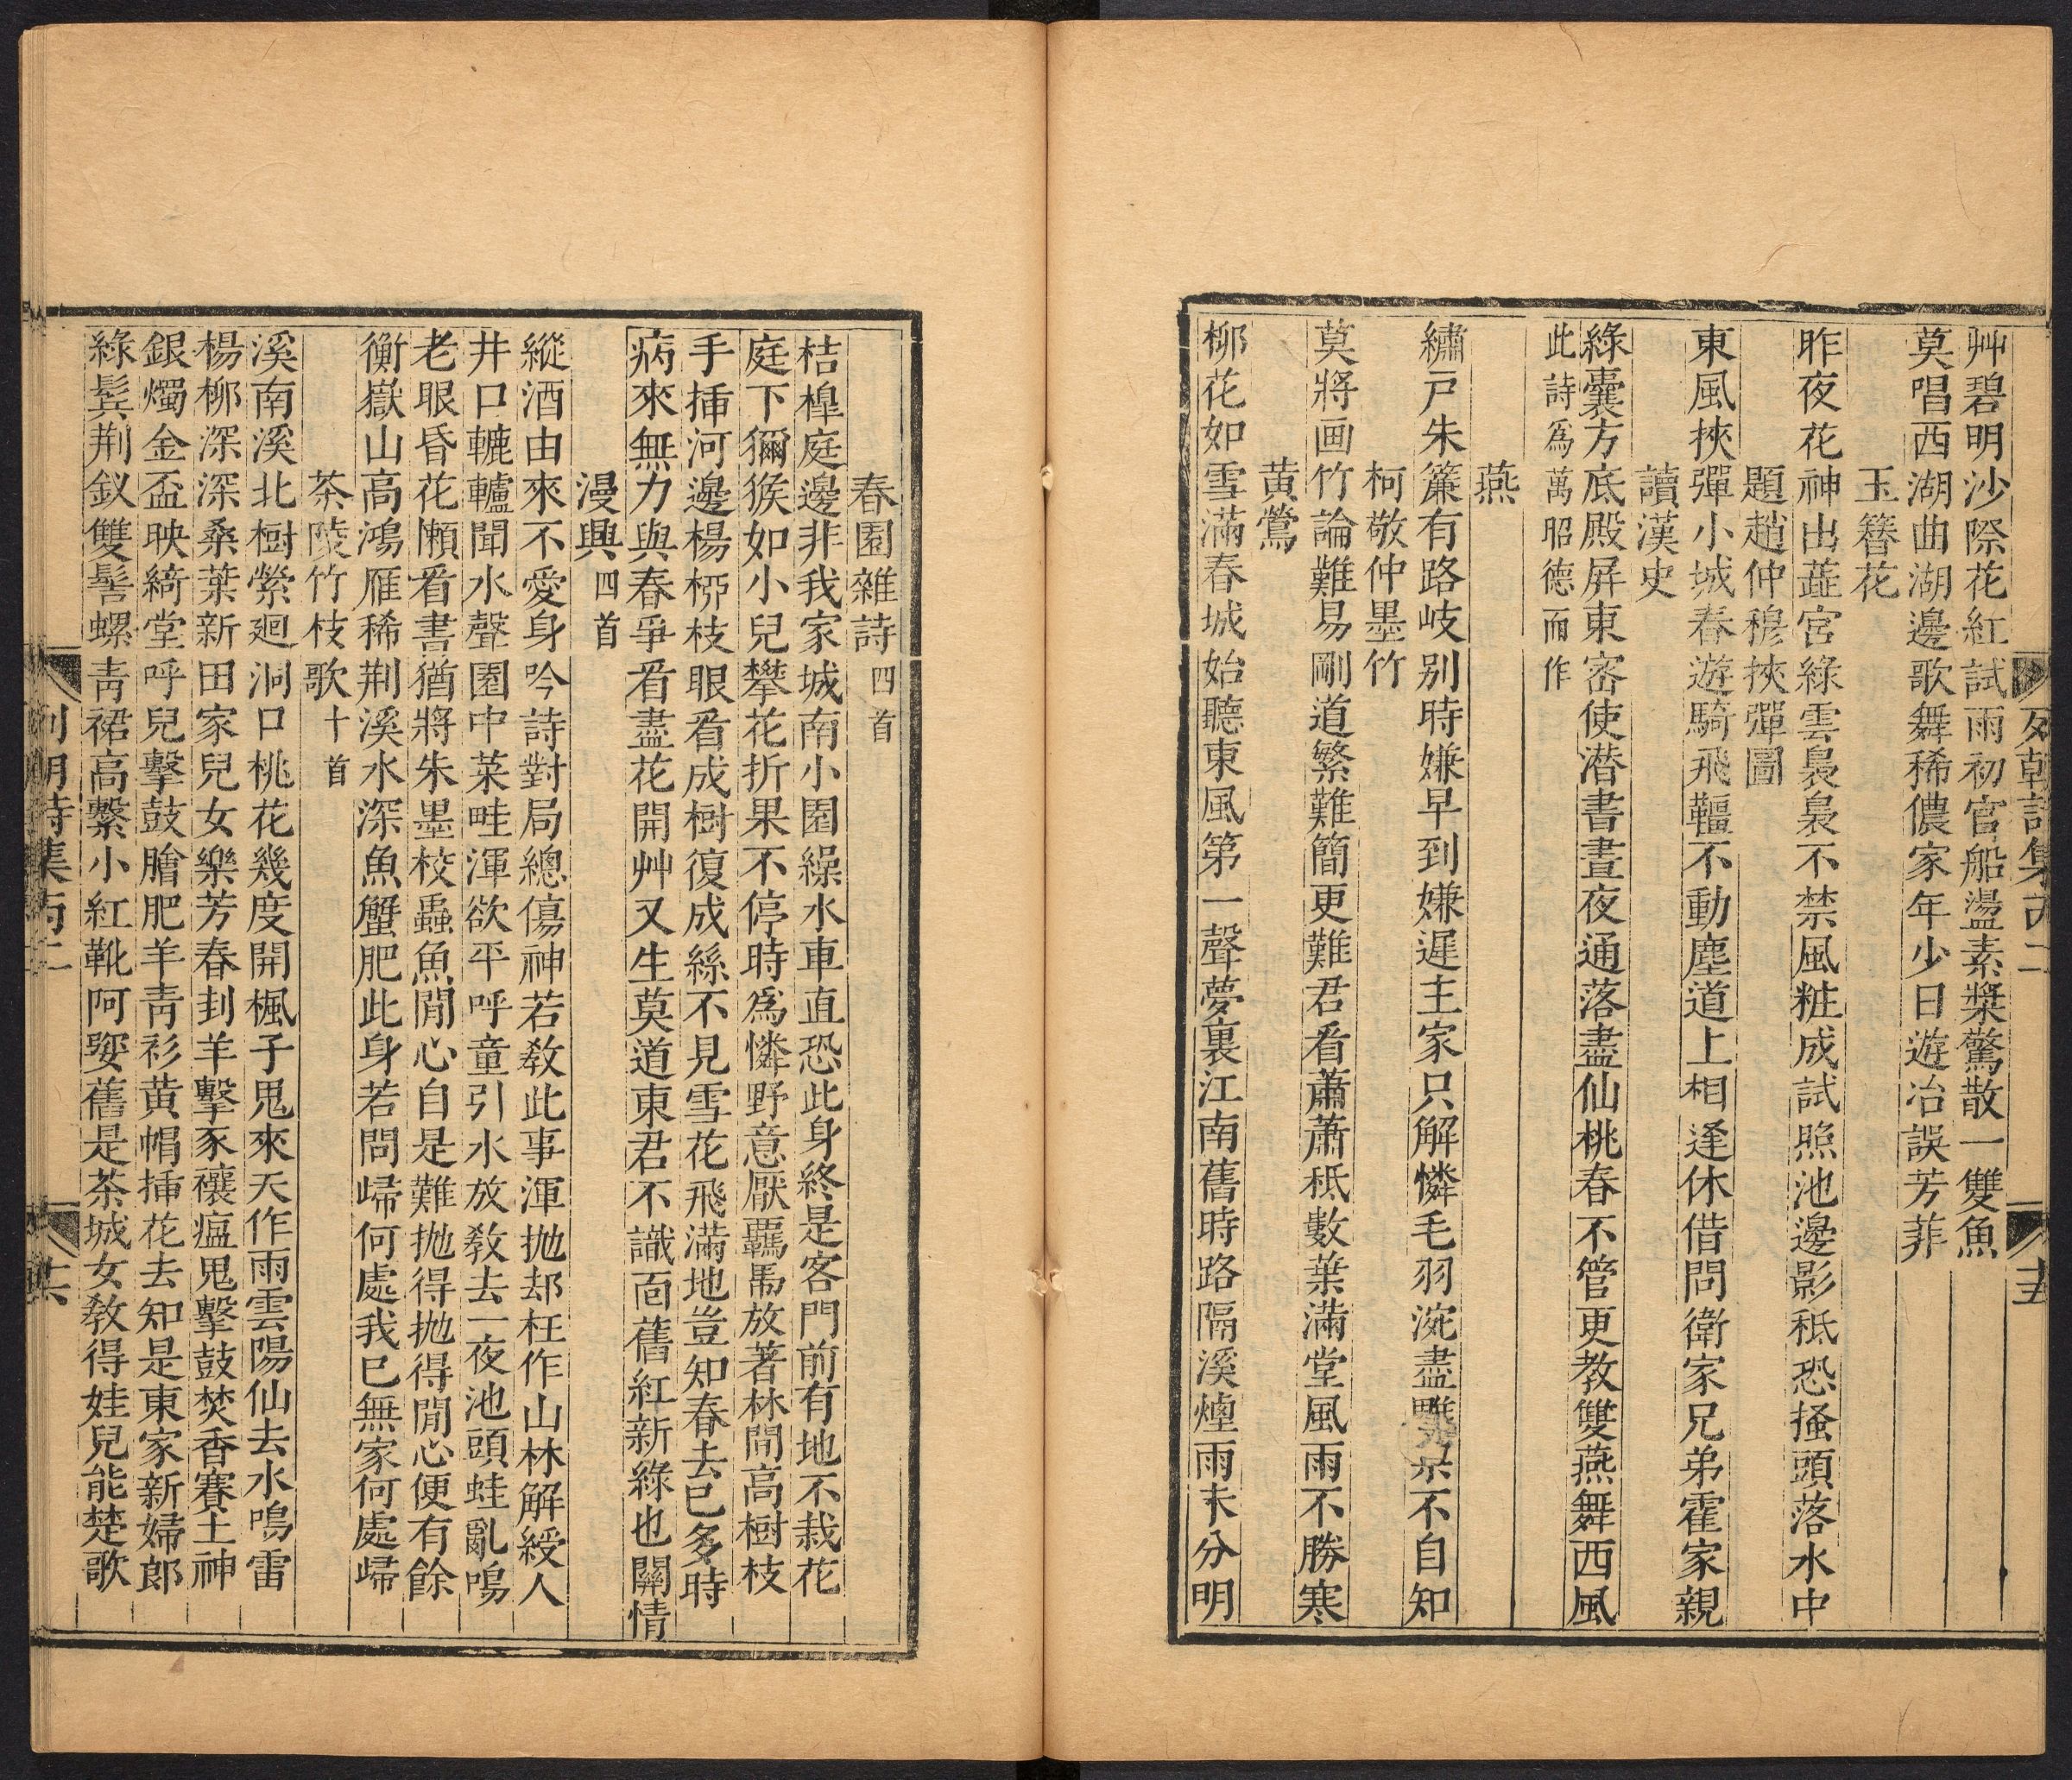 艸碧明沙際花紅試雨初官船盪素槳驚散一雙魚
莫唱西湖曲湖邊歌舞稀儂家年少日遊冶誤芳菲
玉簪花
昨夜花神出蘂宮綠雲裊裊不禁風粧成試照池邊影秪恐搔頭落水中
題趙仲穆挾彈圖
東風挾彈小城春遊騎飛韁不動塵道上相逢休借問衛家兄弟霍家親
讀漢史
綠囊方底殿屏東密使潜書晝夜通落盡仙桃春不管更教雙燕舞西風
此詩爲萬昭德而作
燕
繡戸朱簾有路岐别時嫌早到嫌遲主家只解憐毛羽涴盡不自知
柯敬仲墨竹
莫將画竹論難易剛道繁難簡更難君看蕭蕭秪數葉滿堂風雨不勝寒
黄鶯
柳花如雪滿春城始聽東風第一聲夢裏江南舊時路隔溪煙雨未分明
列朝詩集丙二
十五
春園雜詩四首
桔槹庭邊非我家城南小園繰水車直恐此身終是客門前有地不栽花
庭下獼猴如小兒攀花折果不停時爲憐野意厭羈馽放著林間高樹枝
手揷河邊楊栁枝眼看成樹復成絲不見雪花飛滿地豈知春去已多時
病來無力與春爭看盡花開艸又生莫道東君不識面舊紅新綠也關情
漫興四首
縱酒由來不愛身吟詩對局總傷神若教此事渾抛却枉作山林解綬人
井口轆轤聞水聲園中菜畦渾欲平呼童引水放教去一夜池頭蛙亂鳴
老眼昏花懶看書猶將朱墨校蟲魚閒心自是難抛得抛得閒心便有餘
衡嶽山高鴻雁稀荆溪水深魚蟹肥此身若問歸何處我已無家何處歸
茶陵竹枝歌十首
溪南溪北樹縈迴洞口桃花幾度開楓子鬼來天作雨雲陽仙去水鳴雷
楊柳深深桑葉新田家兒女樂芳春刲羊擊豕禳瘟鬼擊鼓焚香賽土神
銀燭金盃映綺堂呼兒擊鼓膾肥羊青衫黄帽揷花去知是東家新婦郎
綠鬓荆釵雙髻螺青裙高繫小紅靴阿㜲舊是茶城女教得娃兒能楚歌
列朝詩集丙二
十六